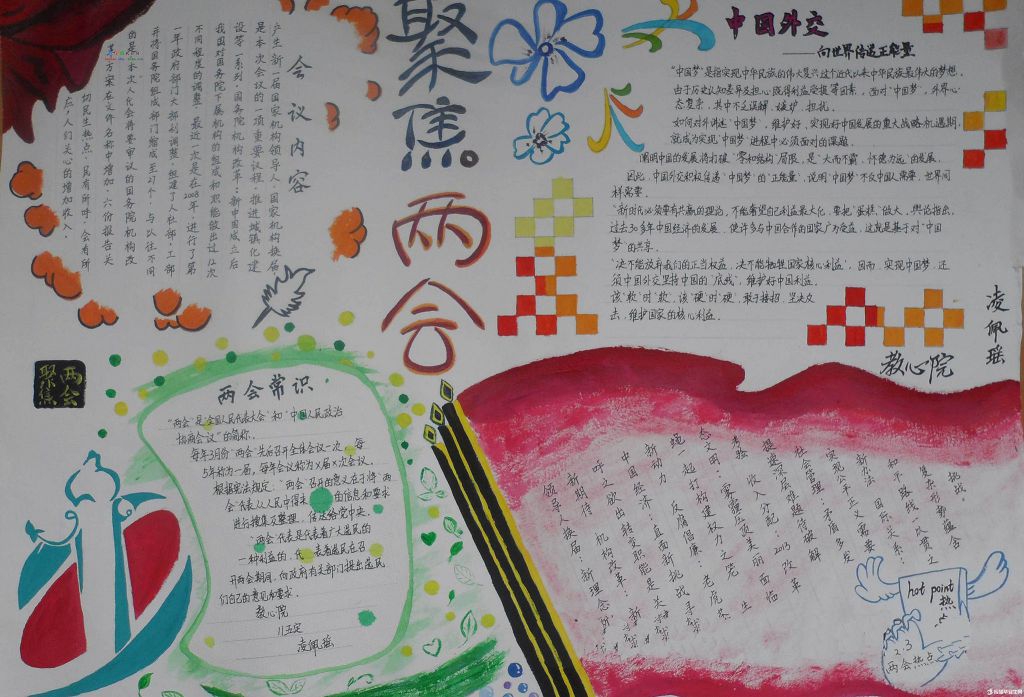 聚焦两会
会议内容
产生新一届国家机构领导人、国家机构换届
是本次会议的一项重要议程·推进城镇化建
设等一系列·国务院机构改革·新中国成立后
我国对国务院下属机构的组成和职能做出过12次
不同程度的调整·最近一次是在2008年·进行了第
一年政府部门大部制调整·组建了人社部·工部
并将国务院组成部门缩减至27个·与以往不同
的是·本次人代会将要审议的国务院机构改
革方案在文件名称中增加
六份报告关
切民生热点·民有所呼·会有所
应·人们关心的增加收入。
中国外交
——向世界传递正能量
“中国梦”是指实现中华民族的伟大复兴这个近代以来中华民族最伟大的梦想,
由于历史认知差异及担心既得利益受损等因素,面对“中国梦”,外界心
态复杂,其中不乏误解、嫉妒、担忧。
如何对外讲述“中国梦”,维护好、实现好中国发展的重大战略机遇期,
就成为实现“中国梦”进程中必须面对的课题。
阐明中国的发展将打破“零和结构”局限,是“大而不霸、怀德为远”的发展。
因此,中国外交积极传递“中国梦”的“正能量”,说明“中国梦”不仅中国人需要,世界同
样需要。
“新时代必须要有共赢的理论,不能奢望自己利益最大化,要把“蛋糕”做大。舆论指出,
过去30多年中国经济的发展,使许多与中国合作的国家广为受益,这就是基于对“中国
梦”的共享。
“决不能放弃我们的正当权益,决不能牺牲国家核心利益”,因而,实现中国梦,还
须中国外交坚持中国的“底线”,维护好中国利益。
该“软”时“软”,该“硬”时“硬”,敢于接招,坚决反
击,维护国家的核心利益。
教心院
凌佩瑶
两会
聚焦
两会常识
“两会”是“全国人民代表大会”和“中国人民政治
协商会议”的简称。
每年3月份“两会”先后召开全体会议一次,每
5年称为一届,每年会议称为X届X次会议。
根据宪法规定:“两会”召开的意义在于将“两
会”代表从人民中得来的信息和要求
进行搜集及整理,传达给党中央。
“两会”代表是代表着广大选民的
一种利益的,代表着选民在召
开两会期间,向政府有关部门提出选民
们自己的意见和要求。
教心院
凌佩瑶
挑战
复杂形势蕴含
和平路线一以贯之
新办法 国际关系:
实现公平正义需要
社会管理:矛盾多发
提速 发展难题待破解
考验 收入分配:2013改革
态文明:雾霾压顶美丽面临
绳一起打构建权力之笼 生
新动力 反腐倡廉:老虎苍
中国经济:直面新挑战寻求
呼之欲出转变职能是关键
新期待 机构改革:新一轮
领导人换届:新理念新
hot point
热
2.3
两会热点